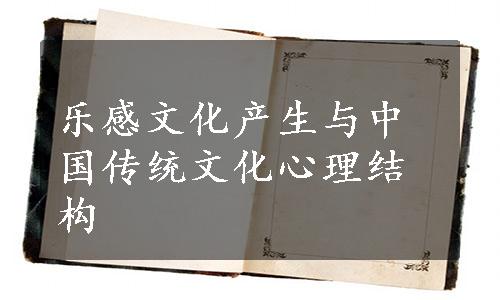 乐感文化产生与中
国传统文化心理结
构